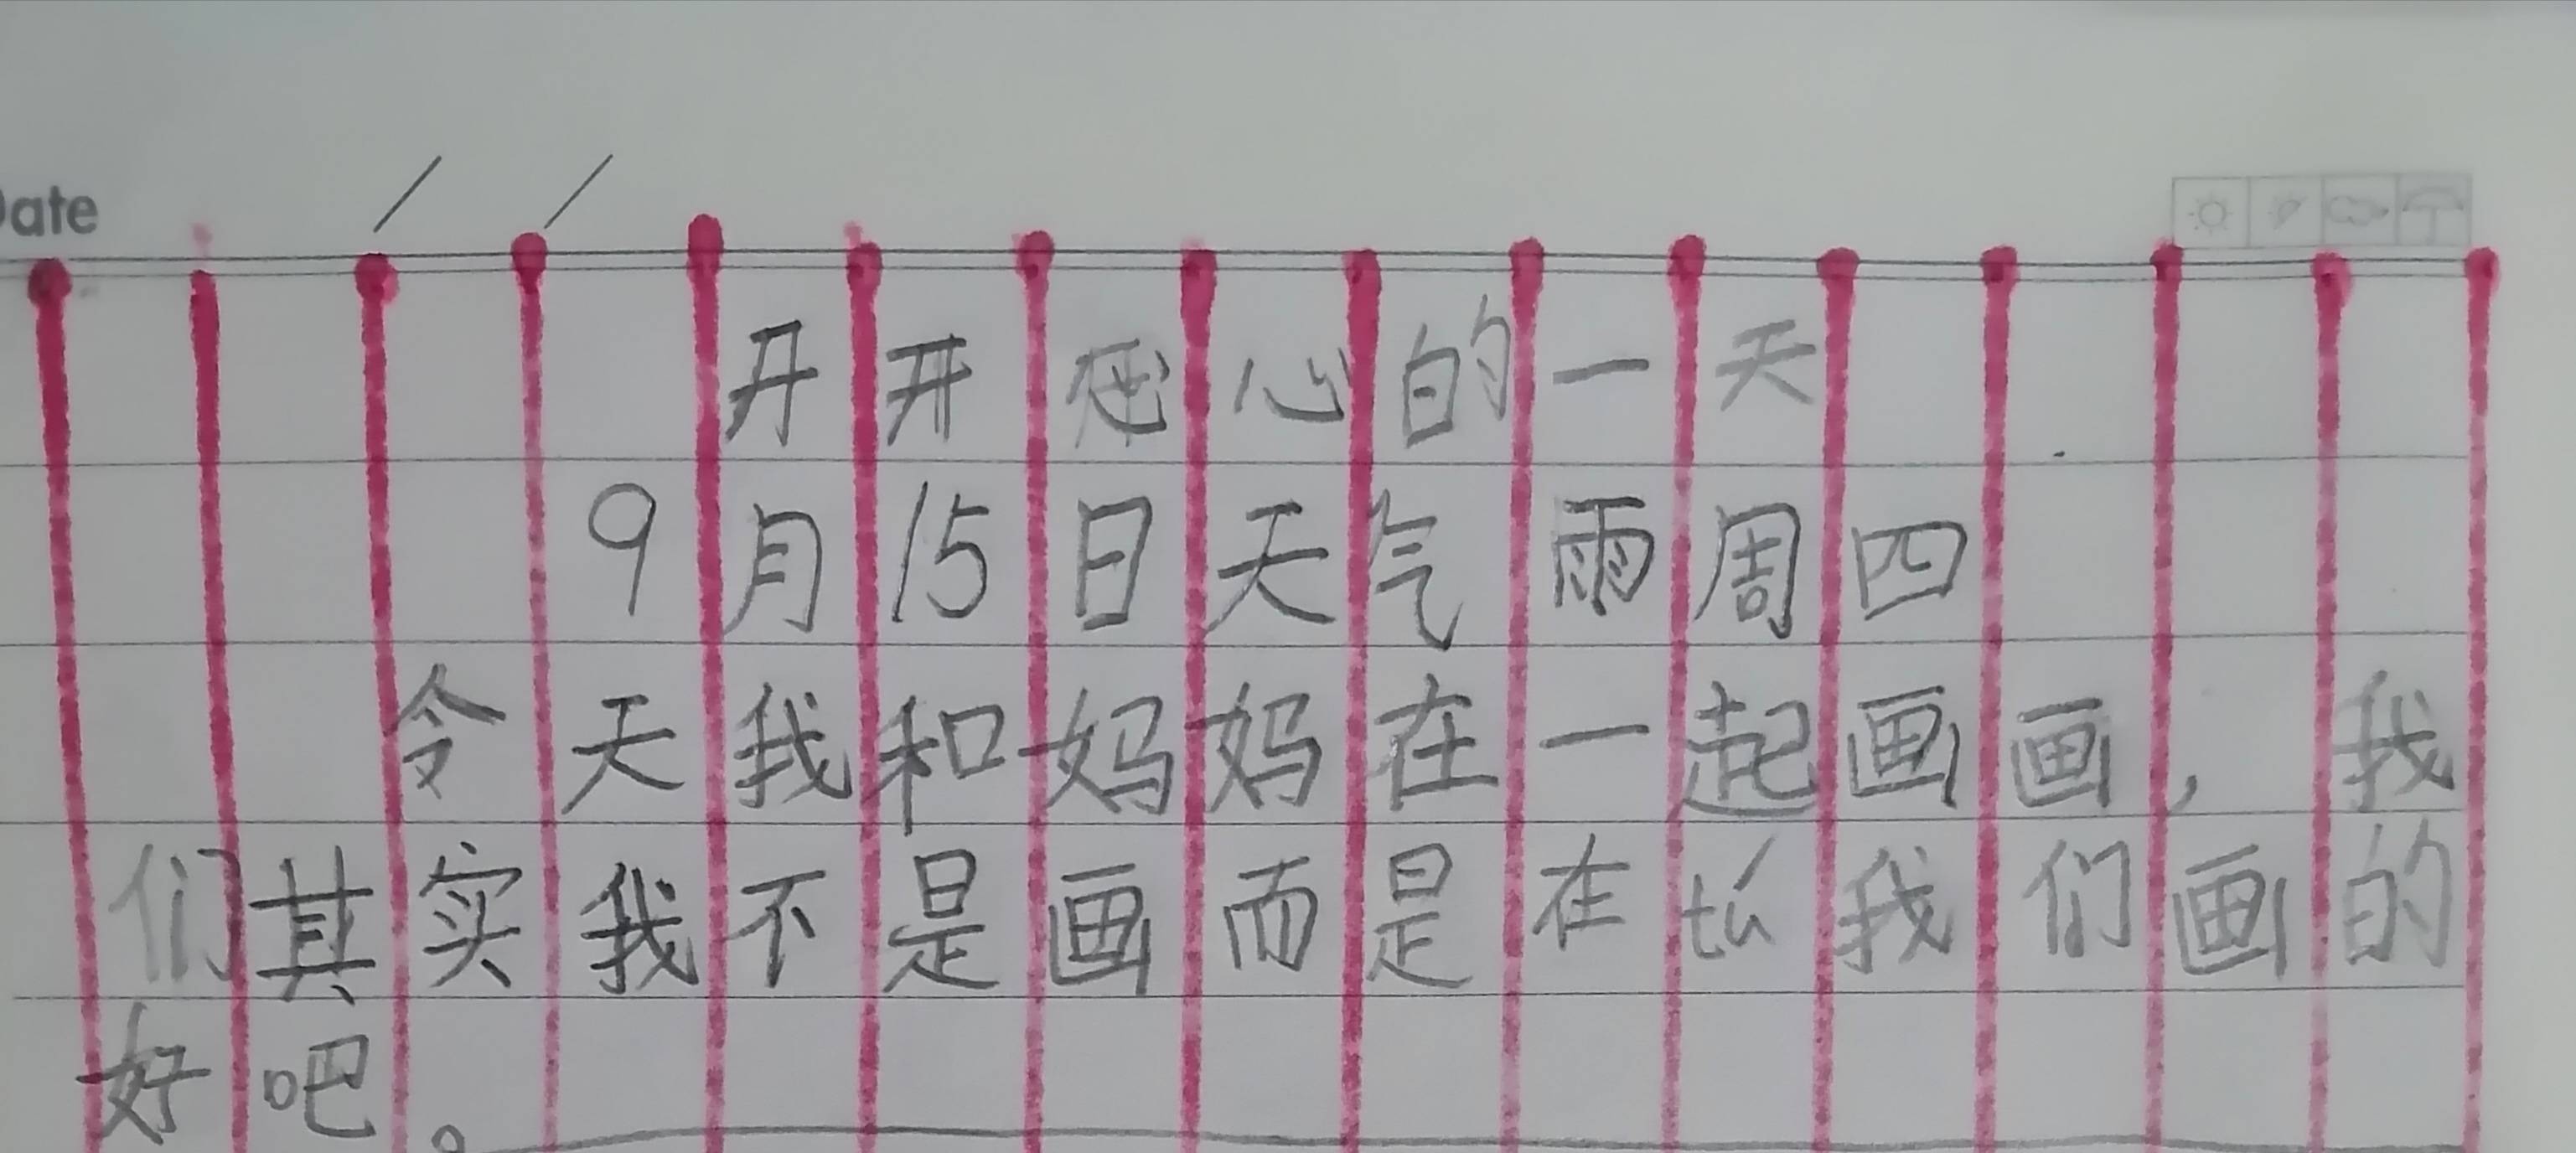 Date / /
开开心心的一天
9月15日天气雨周四
令天我和妈妈在一起画画，我
们其实我不是画而是在tú我们画的
好吧。